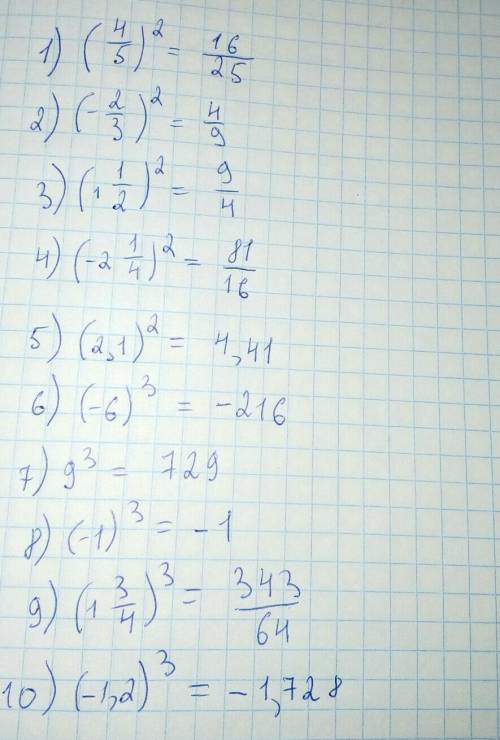 1) (4/5)² = 16/25
2) (-2/3)² = 4/9
3) (1 1/2)² = 9/4
4) (-2 1/4)² = 81/16
5) (2,1)² = 4,41
6) (-6)³ = -216
7) 9³ = 729
8) (-1)³ = -1
9) (1 3/4)³ = 343/64
10) (-1,2)³ = -1,728